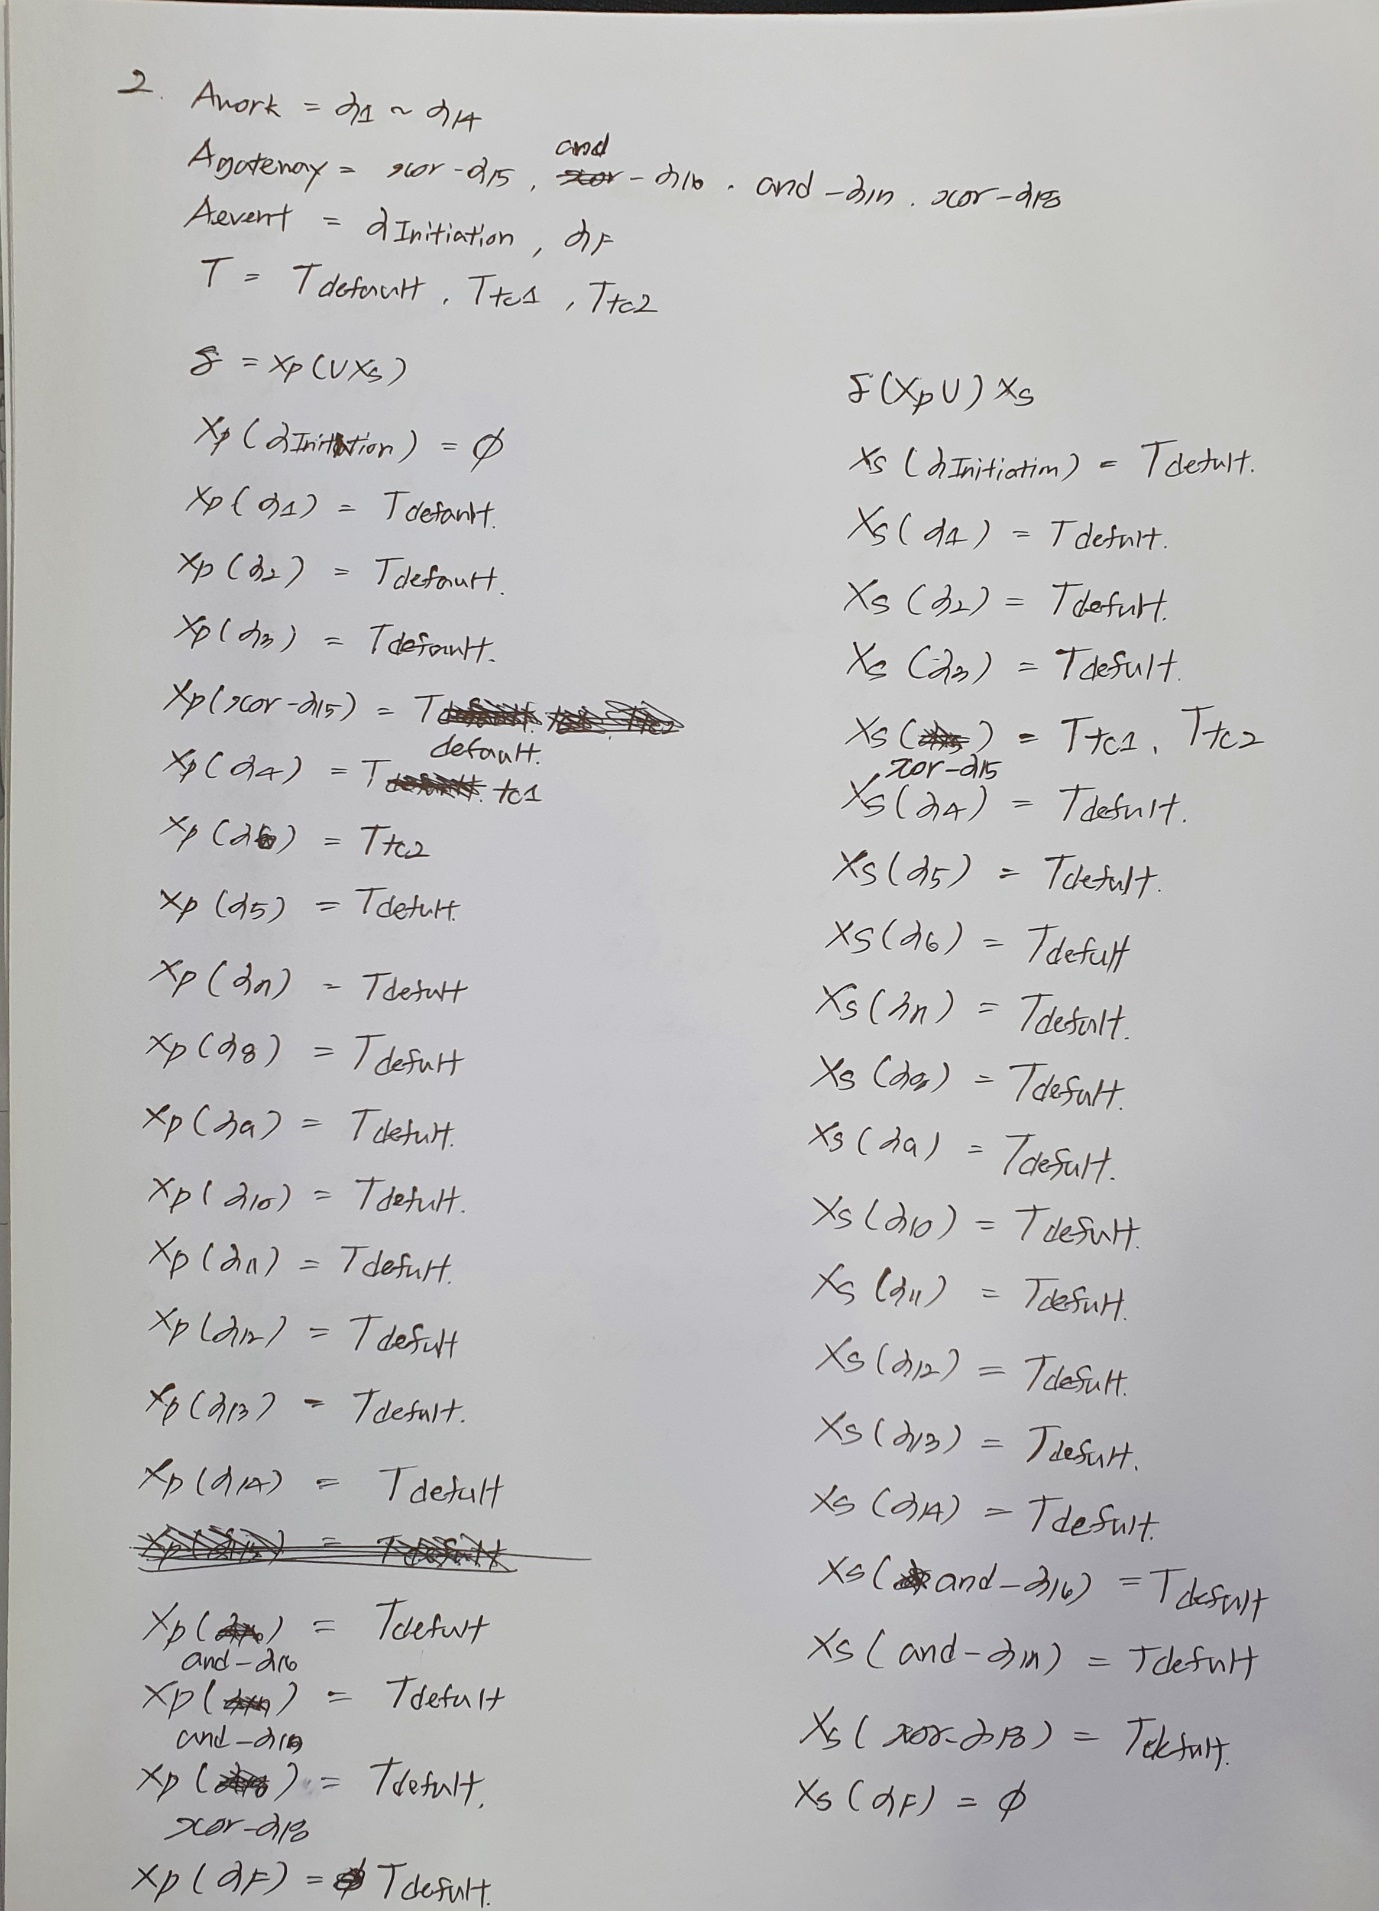 2. Awork = α1 ~ α14
Agateway = xor-α15, and-α16, and-α17, xor-α18
Aevent = αInitiation, αF
T = Tdefault, Ttc1, Ttc2
δ = Xp(UXs)
Xp(αInitiation) = ∅
Xp(α1) = Tdefault.
Xp(α2) = Tdefault.
Xp(α3) = Tdefault.
Xp(xor-α15) = Tdefault.
Xp(α4) = Ttc1
Xp(α6) = Ttc2
Xp(α5) = Tdefult.
Xp(α7) = Tdefult
Xp(α8) = Tdefult
Xp(α9) = Tdefult.
Xp(α10) = Tdefult.
Xp(α11) = Tdefult.
Xp(α12) = Tdefult
Xp(α13) = Tdefult.
Xp(α14) = Tdefult
Xp(and-α16) = Tdefult
Xp( ) = Tdefult
Xp(xor-α18) = Tdefult.
Xp(αF) = Tdefult.
δ(XpU)Xs
Xs(αInitiation) = Tdefult.
Xs(α1) = Tdefult.
Xs(α2) = Tdefult.
Xs(α3) = Tdefult.
Xs(xor-α15) = Ttc1, Ttc2
Xs(α4) = Tdefult.
Xs(α5) = Tdefult.
Xs(α6) = Tdefult
Xs(α7) = Tdefult.
Xs(α8) = Tdefult.
Xs(α9) = Tdefult.
Xs(α10) = Tdefult.
Xs(α11) = Tdefult.
Xs(α12) = Tdefult.
Xs(α13) = Tdefult.
Xs(α14) = Tdefult.
Xs(and-α16) = Tdefult
Xs(and-α17) = Tdefult
Xs(xor-α18) = Tdefult.
Xs(αF) = ∅